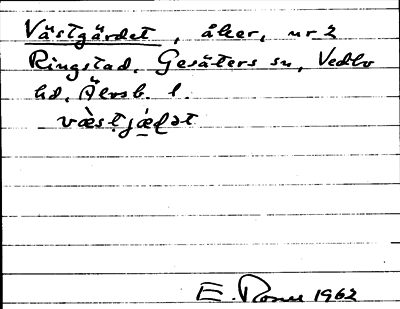 Västgärdet, åker, nr 2
Ringstad, Gesäters sn, Vedbo
hd, Älvsb. l.
væ̀stjæ̀ḷət
E. 1962